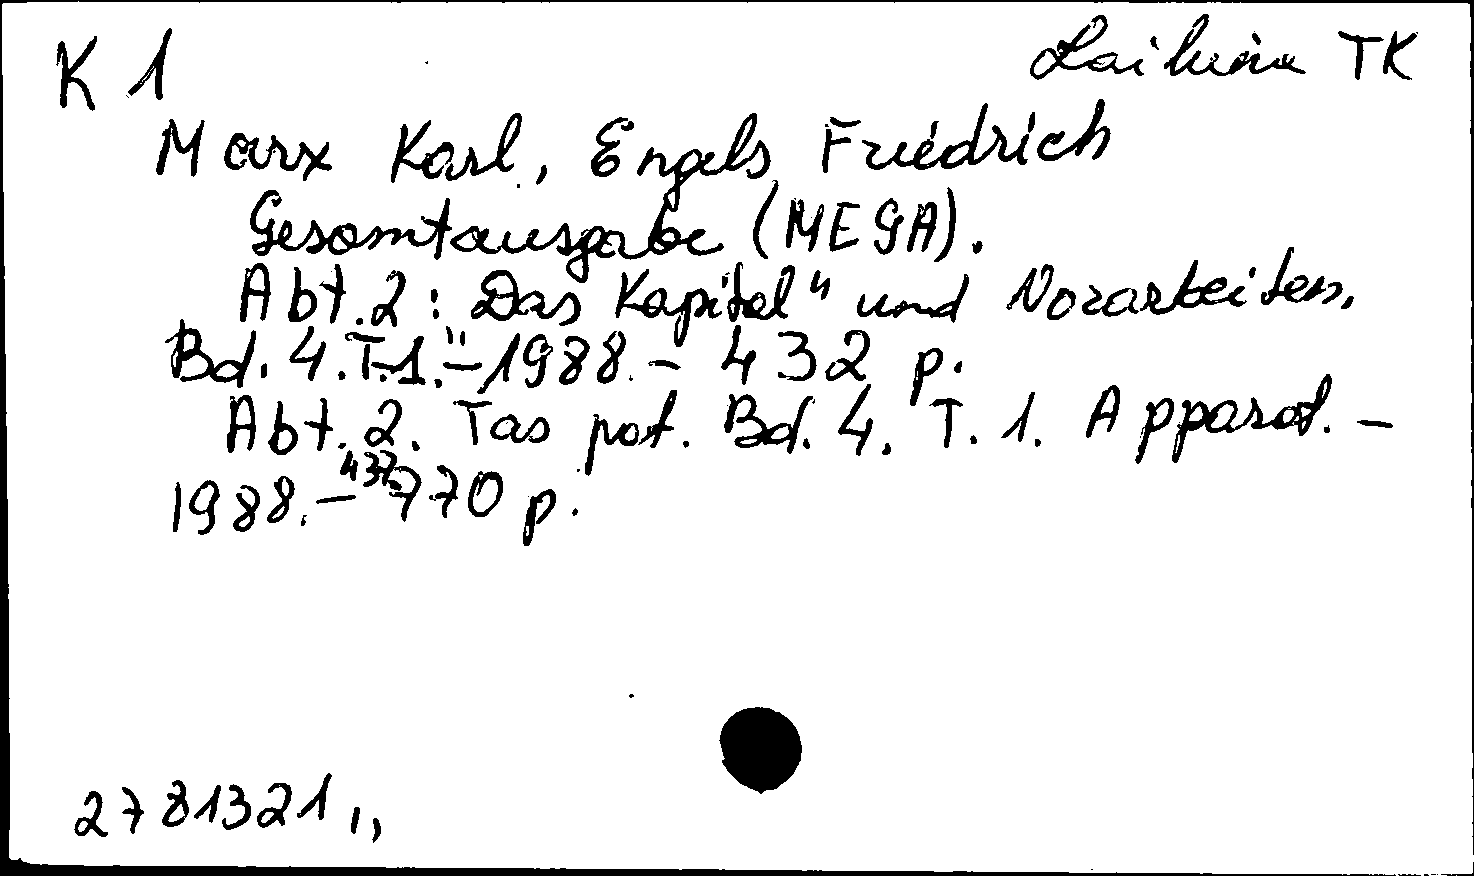 K 1 Laikina TK
Marx Karl, Engels Friedrich
Gesamtausgabe (MEGA).
Abt. 2: „Das Kapital“ und Vorarbeiten.
Bd. 4. T. 1. – 1988. – 432 p.
Abt. 2. Tas pat. Bd. 4. T. 1. Apparat. –
1988. – 770 p.
2781321,,